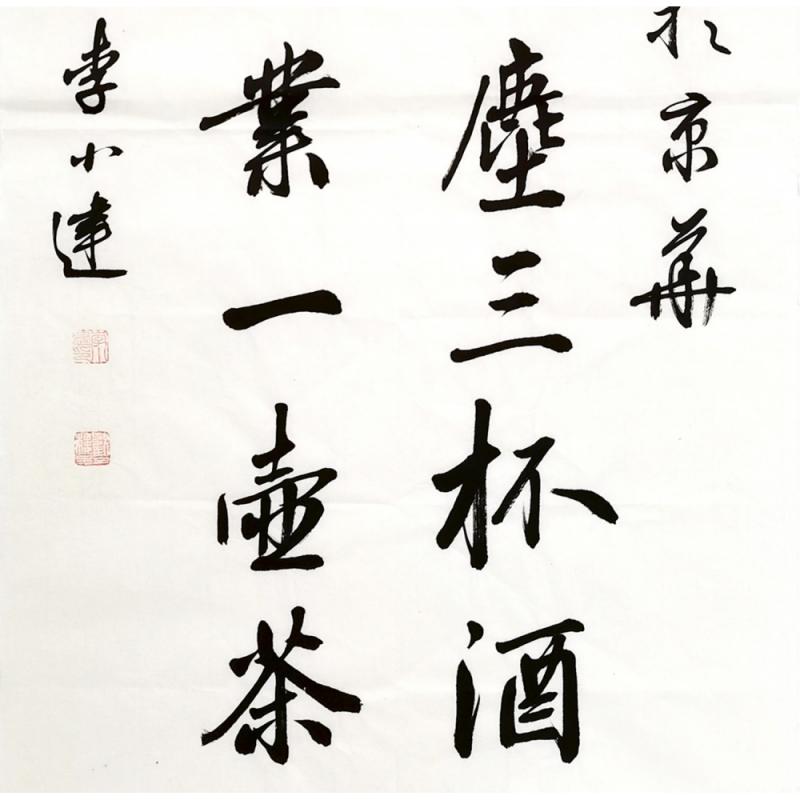 於京華
塵三杯酒
業一壺茶
李小達